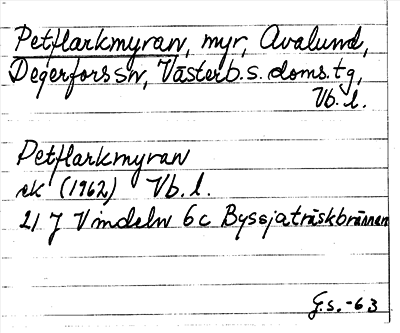 Petflarkmyran, myr, Avalund,
Degerfors sn, Västerb.s. doms.tg,
Vb. l.
Petflarkmyran
ek (1962) Vb. l.
21 J Vindeln 6c Byssjaträskbrännan
G.S. -63